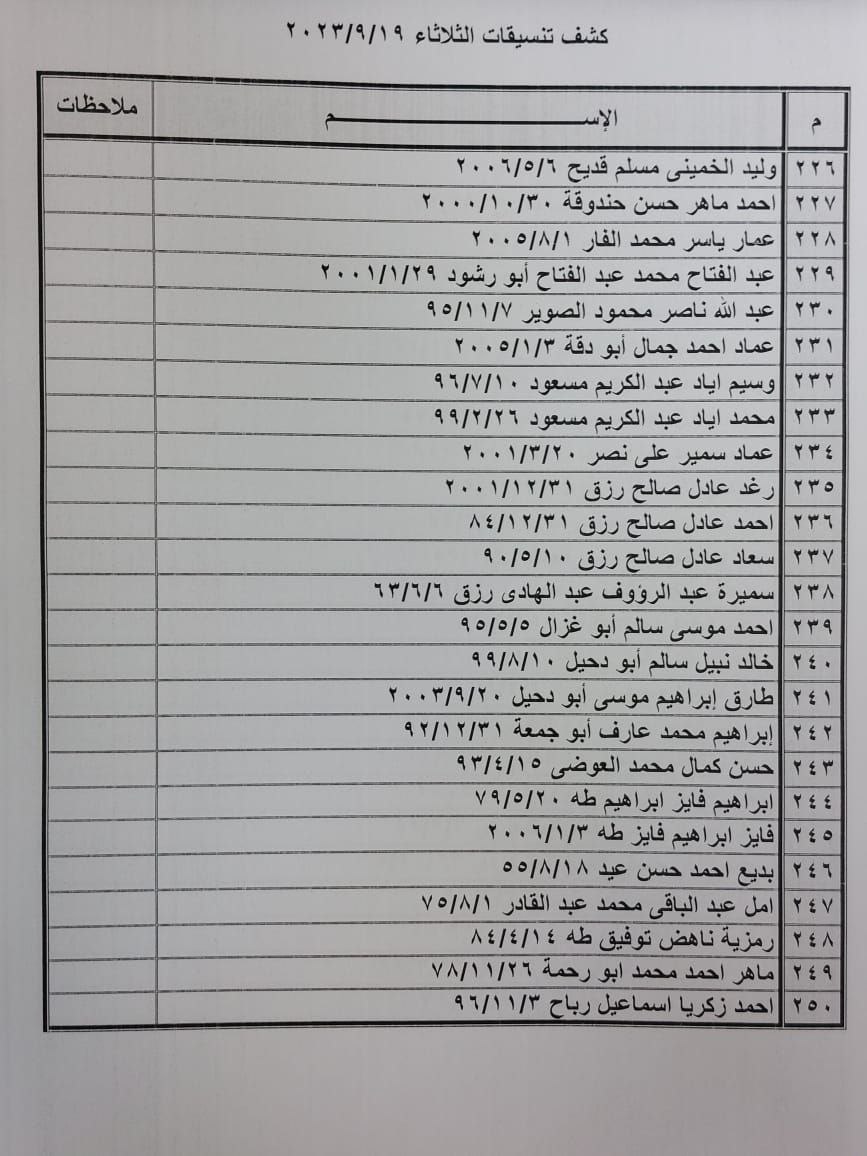 كشف تنسيقات الثلاثاء ٢٠٢٣/٩/١٩
م الإســـــــــم ملاحظات
٢٢٦ وليد الخمينى مسلم قديح ٢٠٠٦/٥/٦
٢٢٧ احمد ماهر حسن حندوقة ٢٠٠٠/١٠/٣٠
٢٢٨ عمار ياسر محمد الفار ٢٠٠٥/٨/١
٢٢٩ عبد الفتاح محمد عبد الفتاح أبو رشود ٢٠٠١/١/٢٩
٢٣٠ عبد الله ناصر محمود الصوير ٩٥/١١/٧
٢٣١ عماد احمد جمال أبو دقة ٢٠٠٥/١/٣
٢٣٢ وسيم اياد عبد الكريم مسعود ٩٦/٧/١٠
٢٣٣ محمد اياد عبد الكريم مسعود ٩٩/٢/٢٦
٢٣٤ عماد سمير على نصر ٢٠٠١/٣/٢٠
٢٣٥ رغد عادل صالح رزق ٢٠٠١/١٢/٣١
٢٣٦ احمد عادل صالح رزق ٨٤/١٢/٣١
٢٣٧ سعاد عادل صالح رزق ٩٠/٥/١٠
٢٣٨ سميرة عبد الرؤوف عبد الهادى رزق ٦٣/٦/٦
٢٣٩ احمد موسى سالم أبو غزال ٩٥/٥/٥
٢٤٠ خالد نبيل سالم أبو دحيل ٩٩/٨/١٠
٢٤١ طارق إبراهيم موسى أبو دحيل ٢٠٠٣/٩/٢٠
٢٤٢ إبراهيم محمد عارف أبو جمعة ٩٢/١٢/٣١
٢٤٣ حسن كمال محمد العوضى ٩٣/٤/١٥
٢٤٤ ابراهيم فايز ابراهيم طه ٧٩/٥/٢٠
٢٤٥ فايز ابراهيم فايز طه ٢٠٠٦/١/٣
٢٤٦ بديع احمد حسن عيد ٥٥/٨/١٨
٢٤٧ امل عبد الباقى محمد عبد القادر ٧٥/٨/١
٢٤٨ رمزية ناهض توفيق طه ٨٤/٤/١٤
٢٤٩ ماهر احمد محمد ابو رحمة ٧٨/١١/٢٦
٢٥٠ احمد زكريا اسماعيل رباح ٩٦/١١/٣